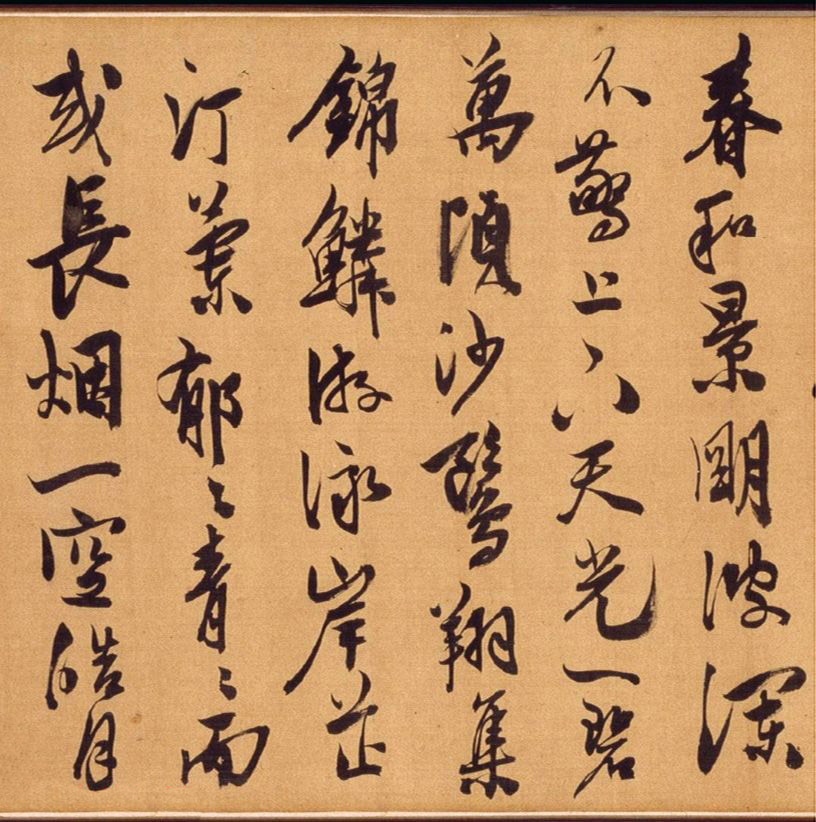 春和景明波瀾
不驚上下天光一碧
萬頃沙鷗翔集
錦鱗游泳岸芷
汀蘭郁〻青〻而
或長烟一空皓月